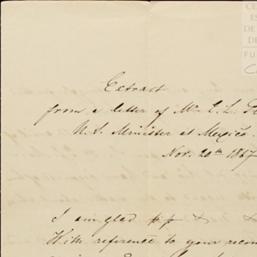 Extract
from a letter of Mr. E. L. Pl
U.S. Minister at Mexico.
Nov. 20th 1867
I am glad
With reference to your recom